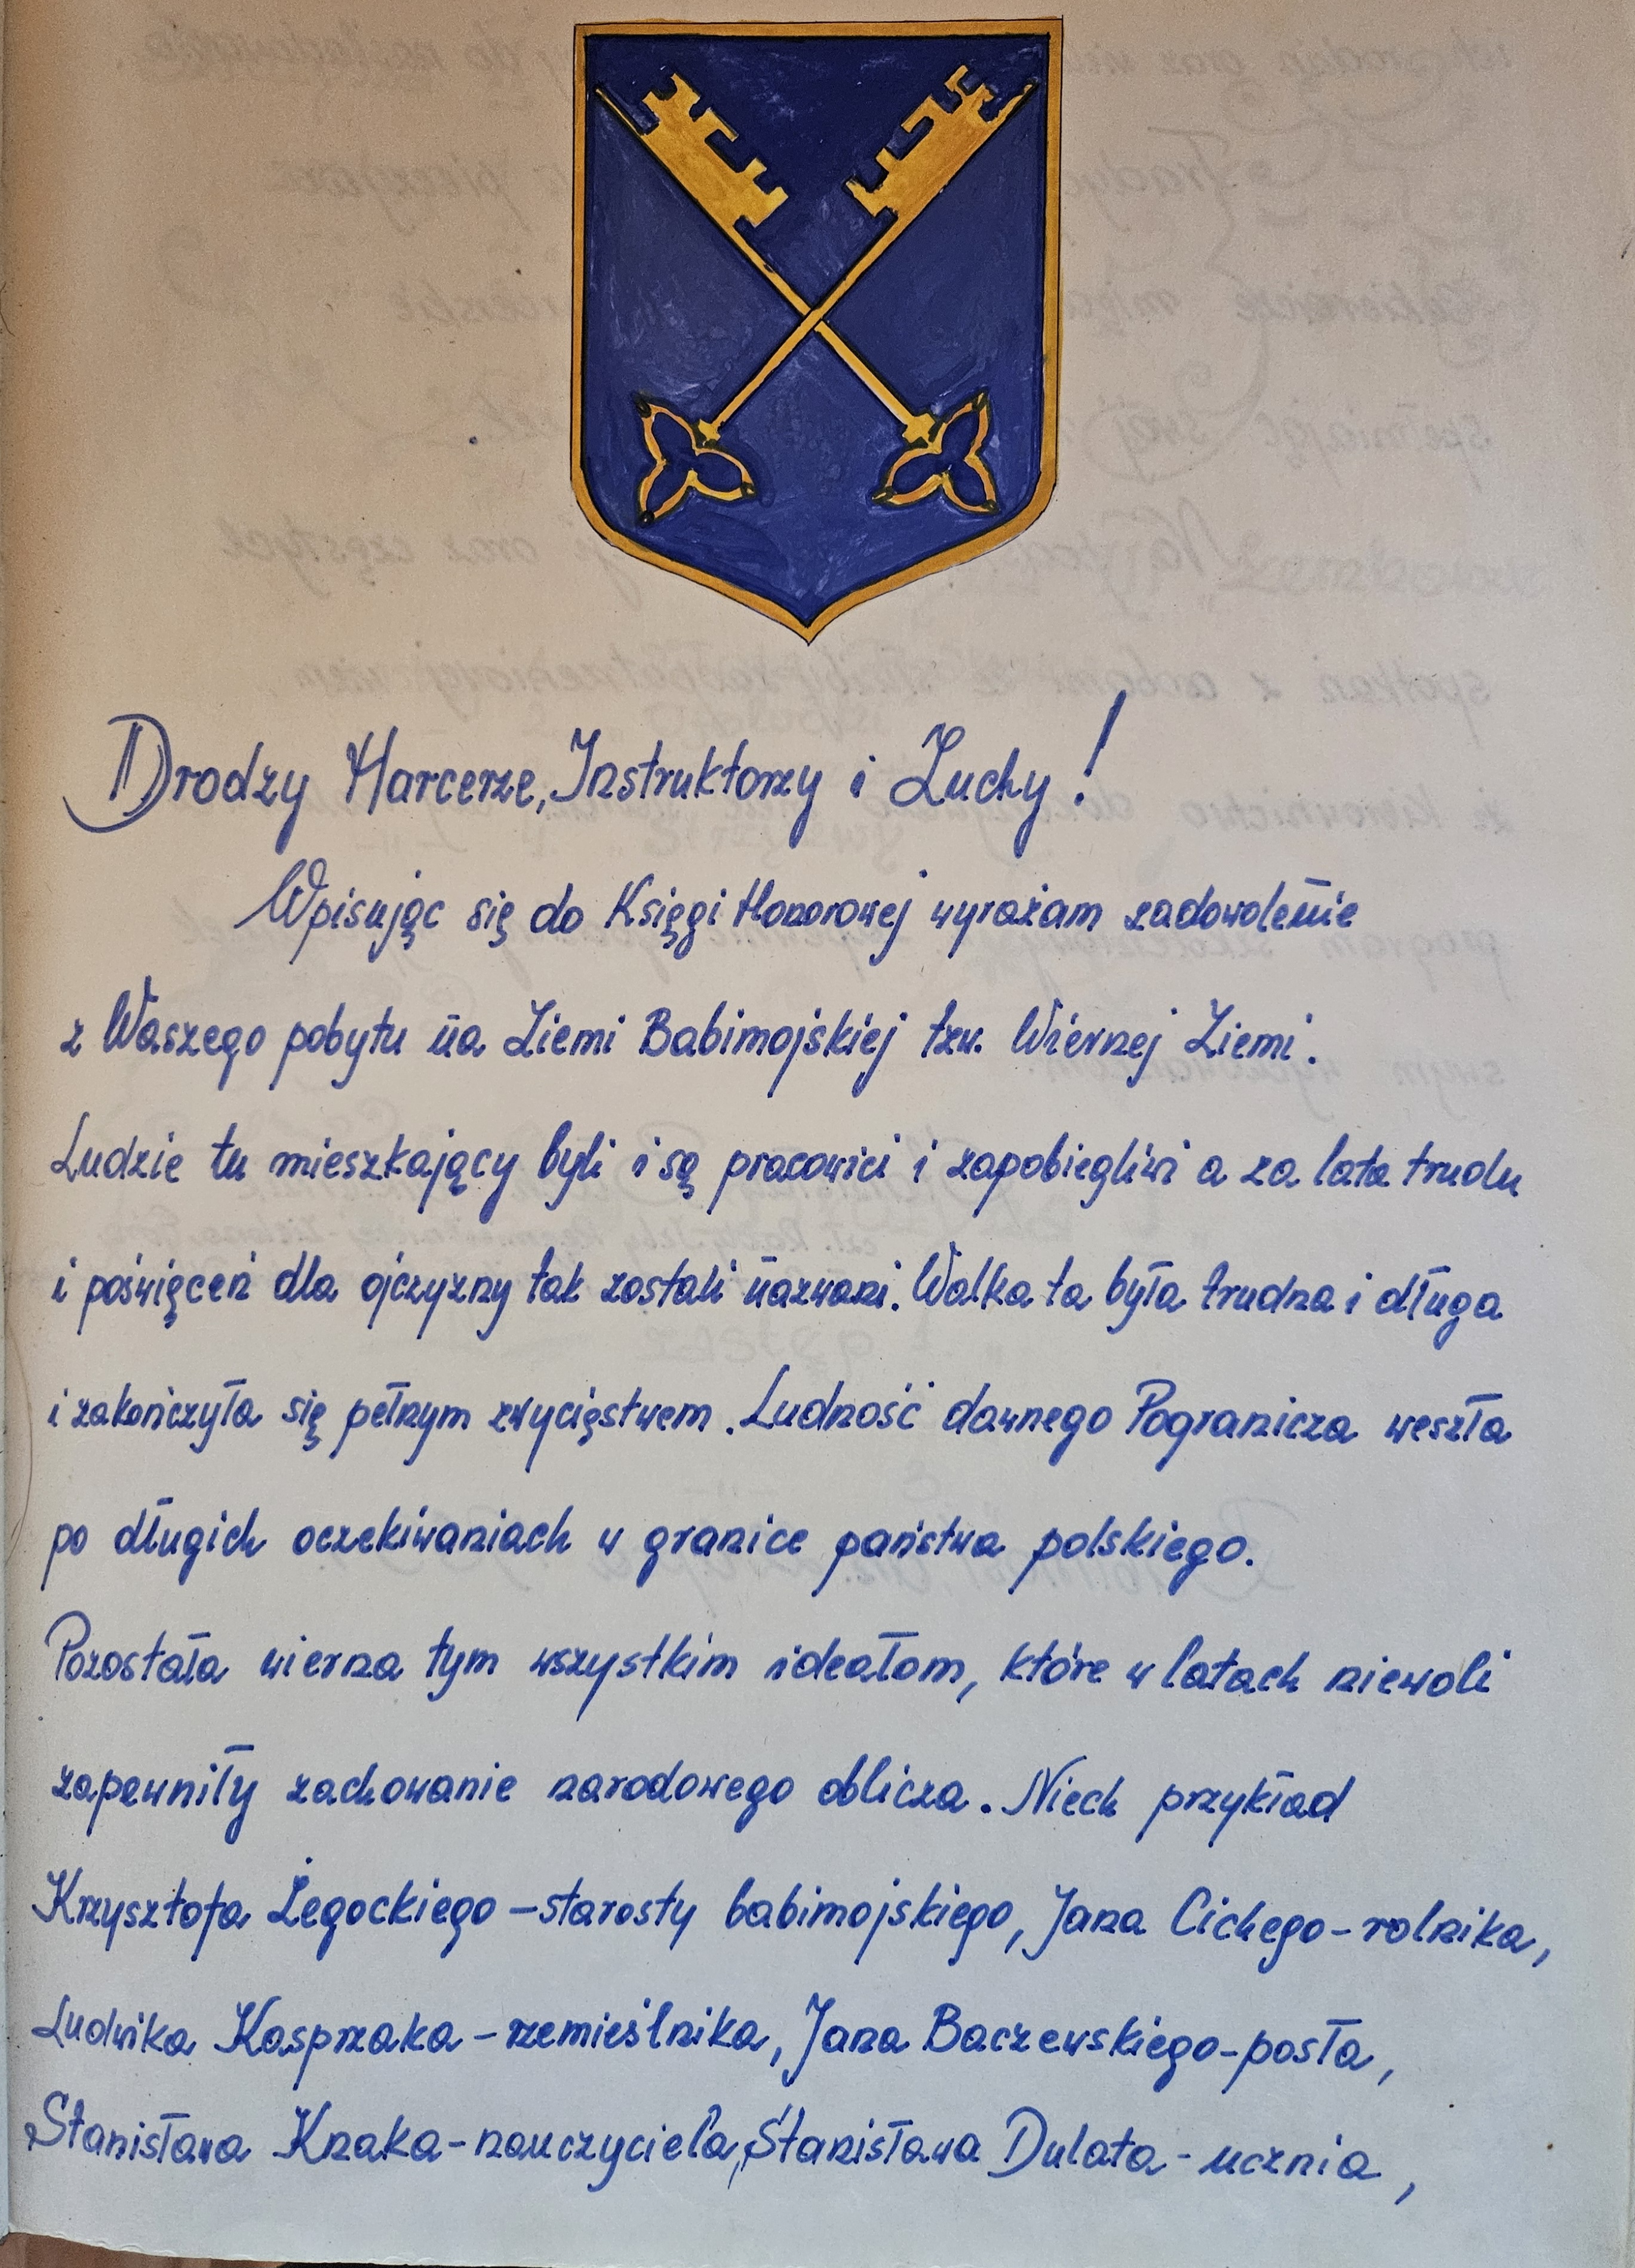 Drodzy Harcerze, Instruktorzy i Zuchy!
Wpisując się do Księgi Honorowej wyrażam zadowolenie
z Waszego pobytu na Ziemi Babimojskiej tzw. Wiernej Ziemi.
Ludzie tu mieszkający byli i są pracowici i zapobiegliwi a za lata trudu
i poświęceń dla ojczyzny tak zostali nazwani. Walka ta była trudna i długa
i zakończyła się pełnym zwycięstwem. Ludność dawnego Pogranicza weszła
po długich oczekiwaniach w granice państwa polskiego.
Pozostała wierna tym wszystkim ideałom, które w latach niewoli
zapewniły zachowanie narodowego oblicza. Niech przykład
Krzysztofa Żegockiego - starosty babimojskiego, Jana Cichego - rolnika,
Ludwika Kasprzaka - rzemieślnika, Jana Baczewskiego - posła,
Stanisława Knaka - nauczyciela, Stanisława Dulata - ucznia,